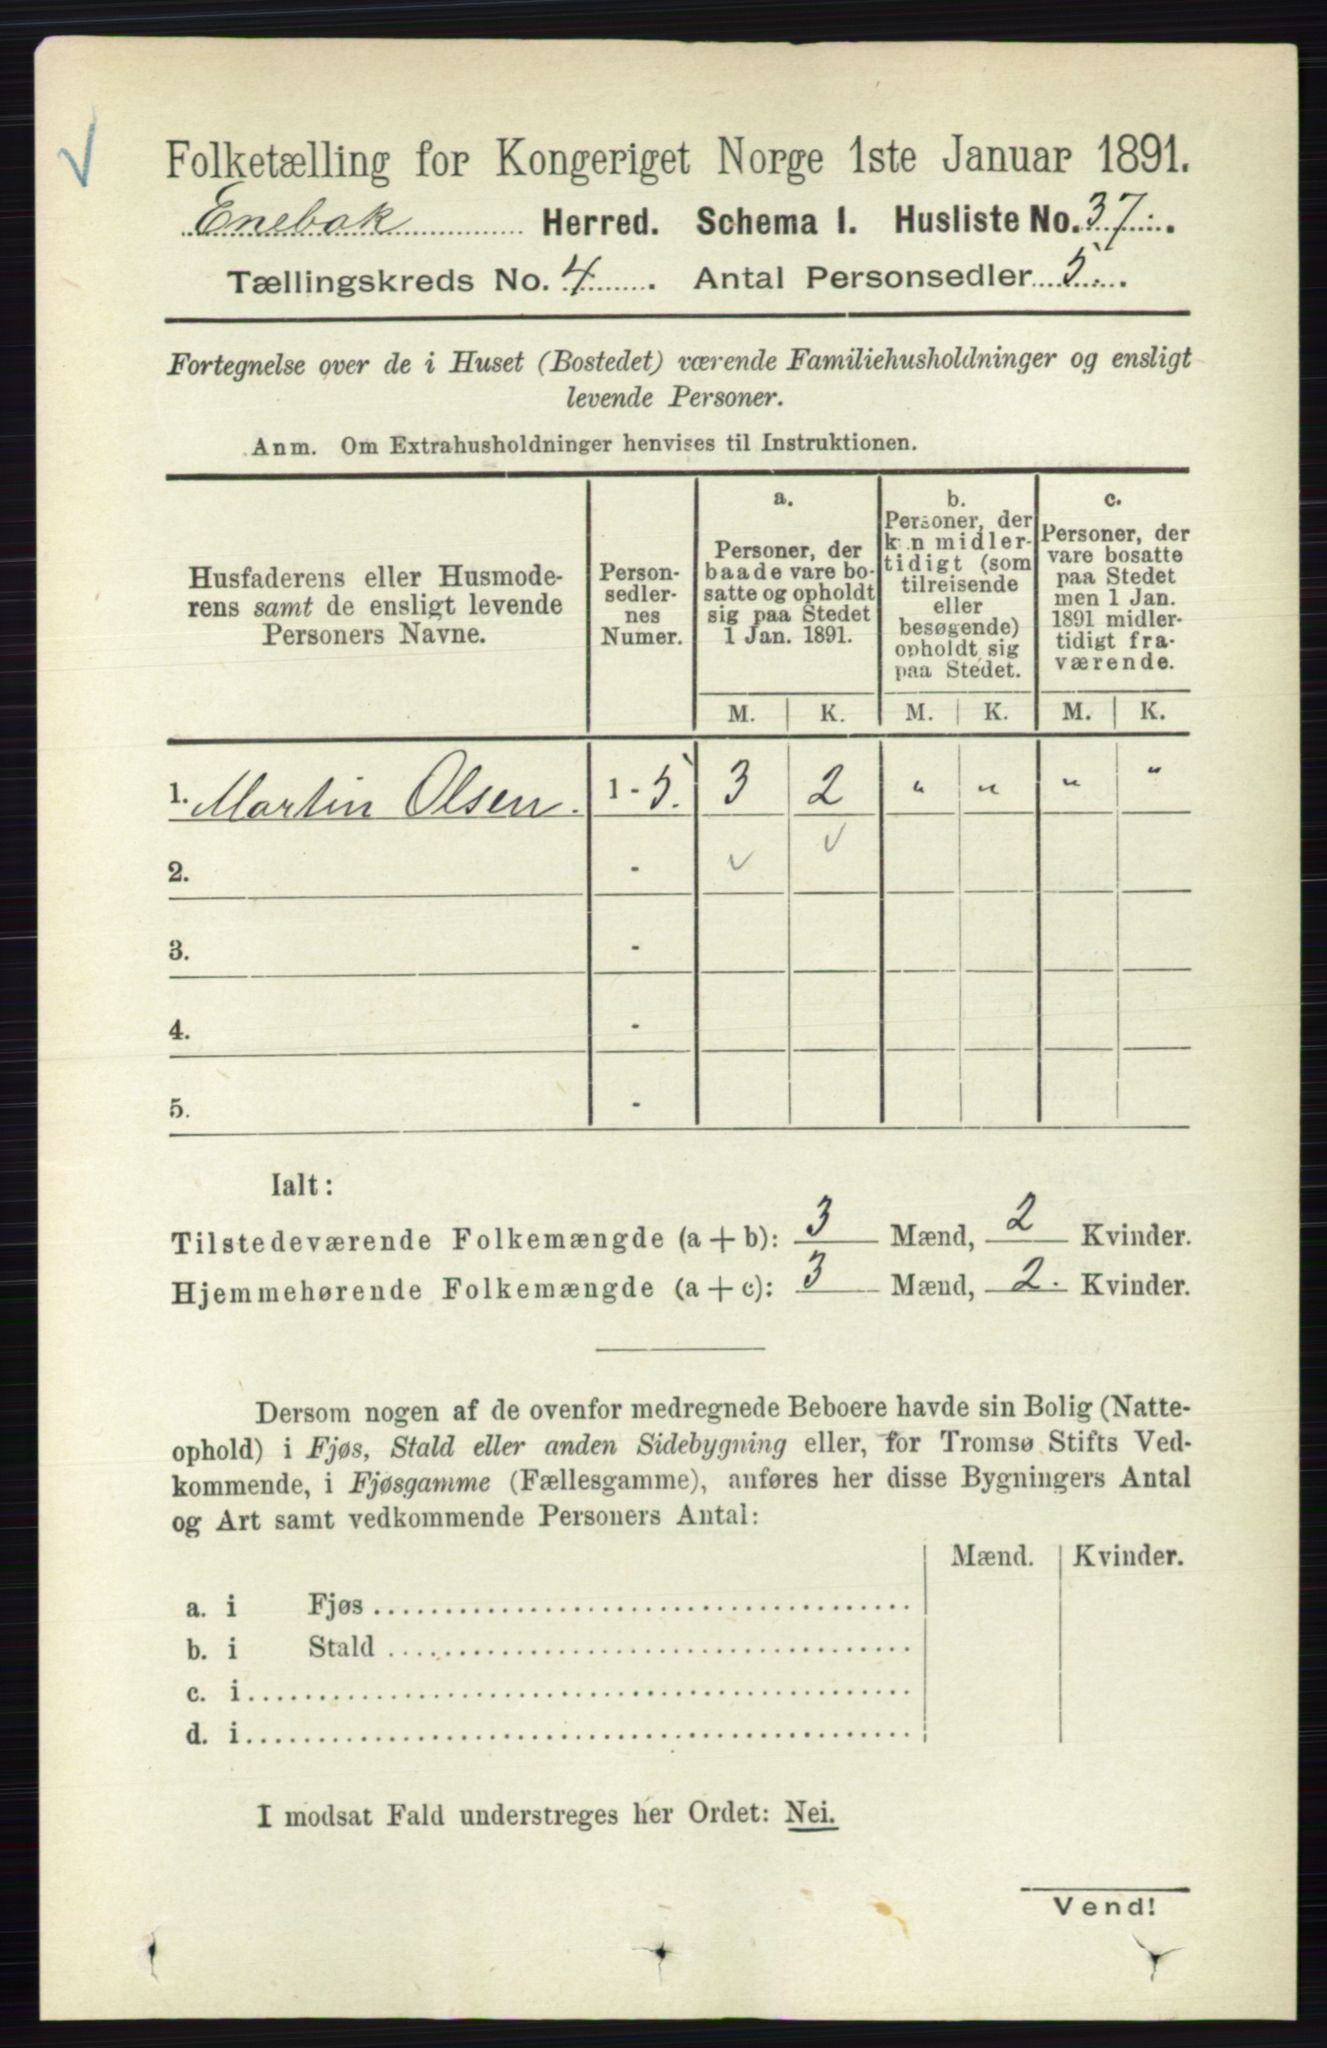 Folketælling for Kongeriget Norge 1ste Januar 1891.
Enebak Herred. Schema 1. Husliste No. 37.
Tællingskreds No. 4. Antal Personsedler 5.
Fortegnelse over de i Huset (Bostedet) værende Familiehusholdninger og ensligt
levende Personer.
Anm. Om Extrahusholdninger henvises til Instruktionen.
Husfaderens eller Husmode-
rens samt de ensligt levende
Personers Navne.
Person-
sedler-
nes
Numer.
a.
Personer, der
baade vare bo-
satte og opholdt
sig paa Stedet
1 Jan. 1891.
b.
Personer, der
kun midler-
tidigt (som
tilreisende
eller
besøgende)
opholdt sig
paa Stedet.
c.
Personer, der
vare bosatte
paa Stedet
men 1 Jan.
1891 midler-
tidigt fra-
værende.
M. K. M. K. M. K.
1. Martin Olsen. 1 - 5. 3 2 " " " "
2. -
3. -
4. -
5. -
Ialt:
Tilstedeværende Folkemængde (a + b): 3 Mænd, 2 Kvinder.
Hjemmehørende Folkemængde (a + c): 3 Mænd, 2. Kvinder.
Dersom nogen af de ovenfor medregnede Beboere havde sin Bolig (Natte-
ophold) i Fjøs, Stald eller anden Sidebygning eller, for Tromsø Stifts Ved-
kommende, i Fjøsgamme (Fællesgamme), anføres her disse Bygningers Antal
og Art samt vedkommende Personers Antal:
Mænd. Kvinder.
a. i Fjøs
b. i Stald
c. i
d. i
I modsat Fald understreges her Ordet: Nei.
Vend!